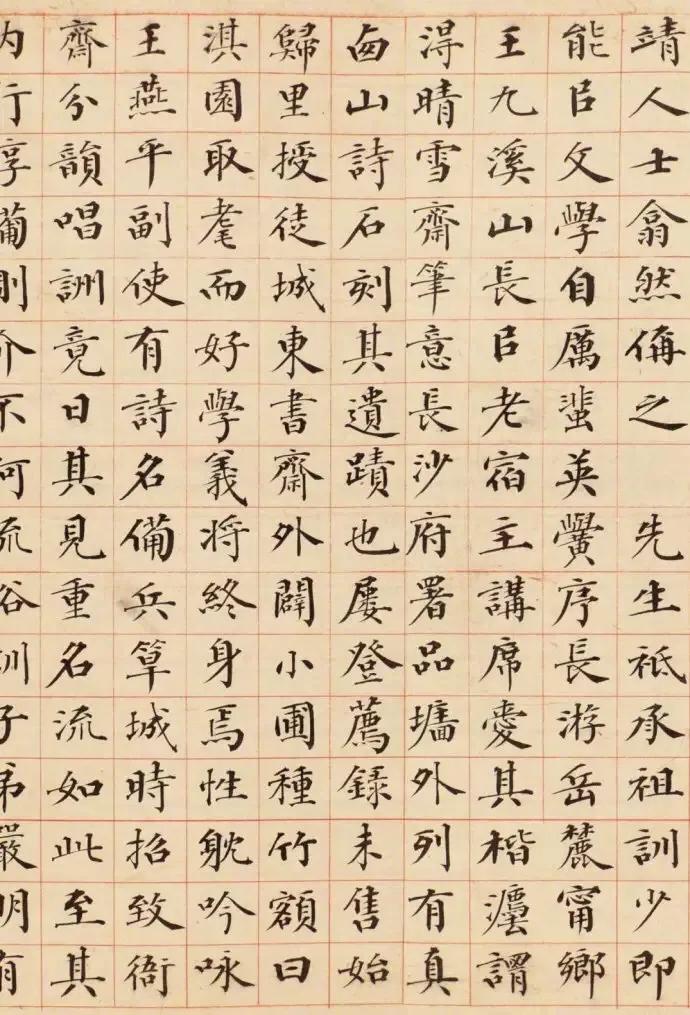 靖人士翕然偁之 先生祗承祖訓少即
能㠯文學自厲蜚英黌序長游岳麓甯鄉
王九溪山長㠯老宿主講席愛其楷灋謂
淂晴雪齋筆意長沙府署品墉外列有真
卥山詩石刻其遺蹟也屢登薦錄未售始
歸里授徒城東書齋外闢小圃種竹額曰
淇園取耄而好學義将終身焉性躭吟咏
王燕平副使有詩名備兵筸城時招致衙
齋分韻唱詶竟日其見重名流如此至其
內行葡則介不阿流俗訓子弟嚴明有